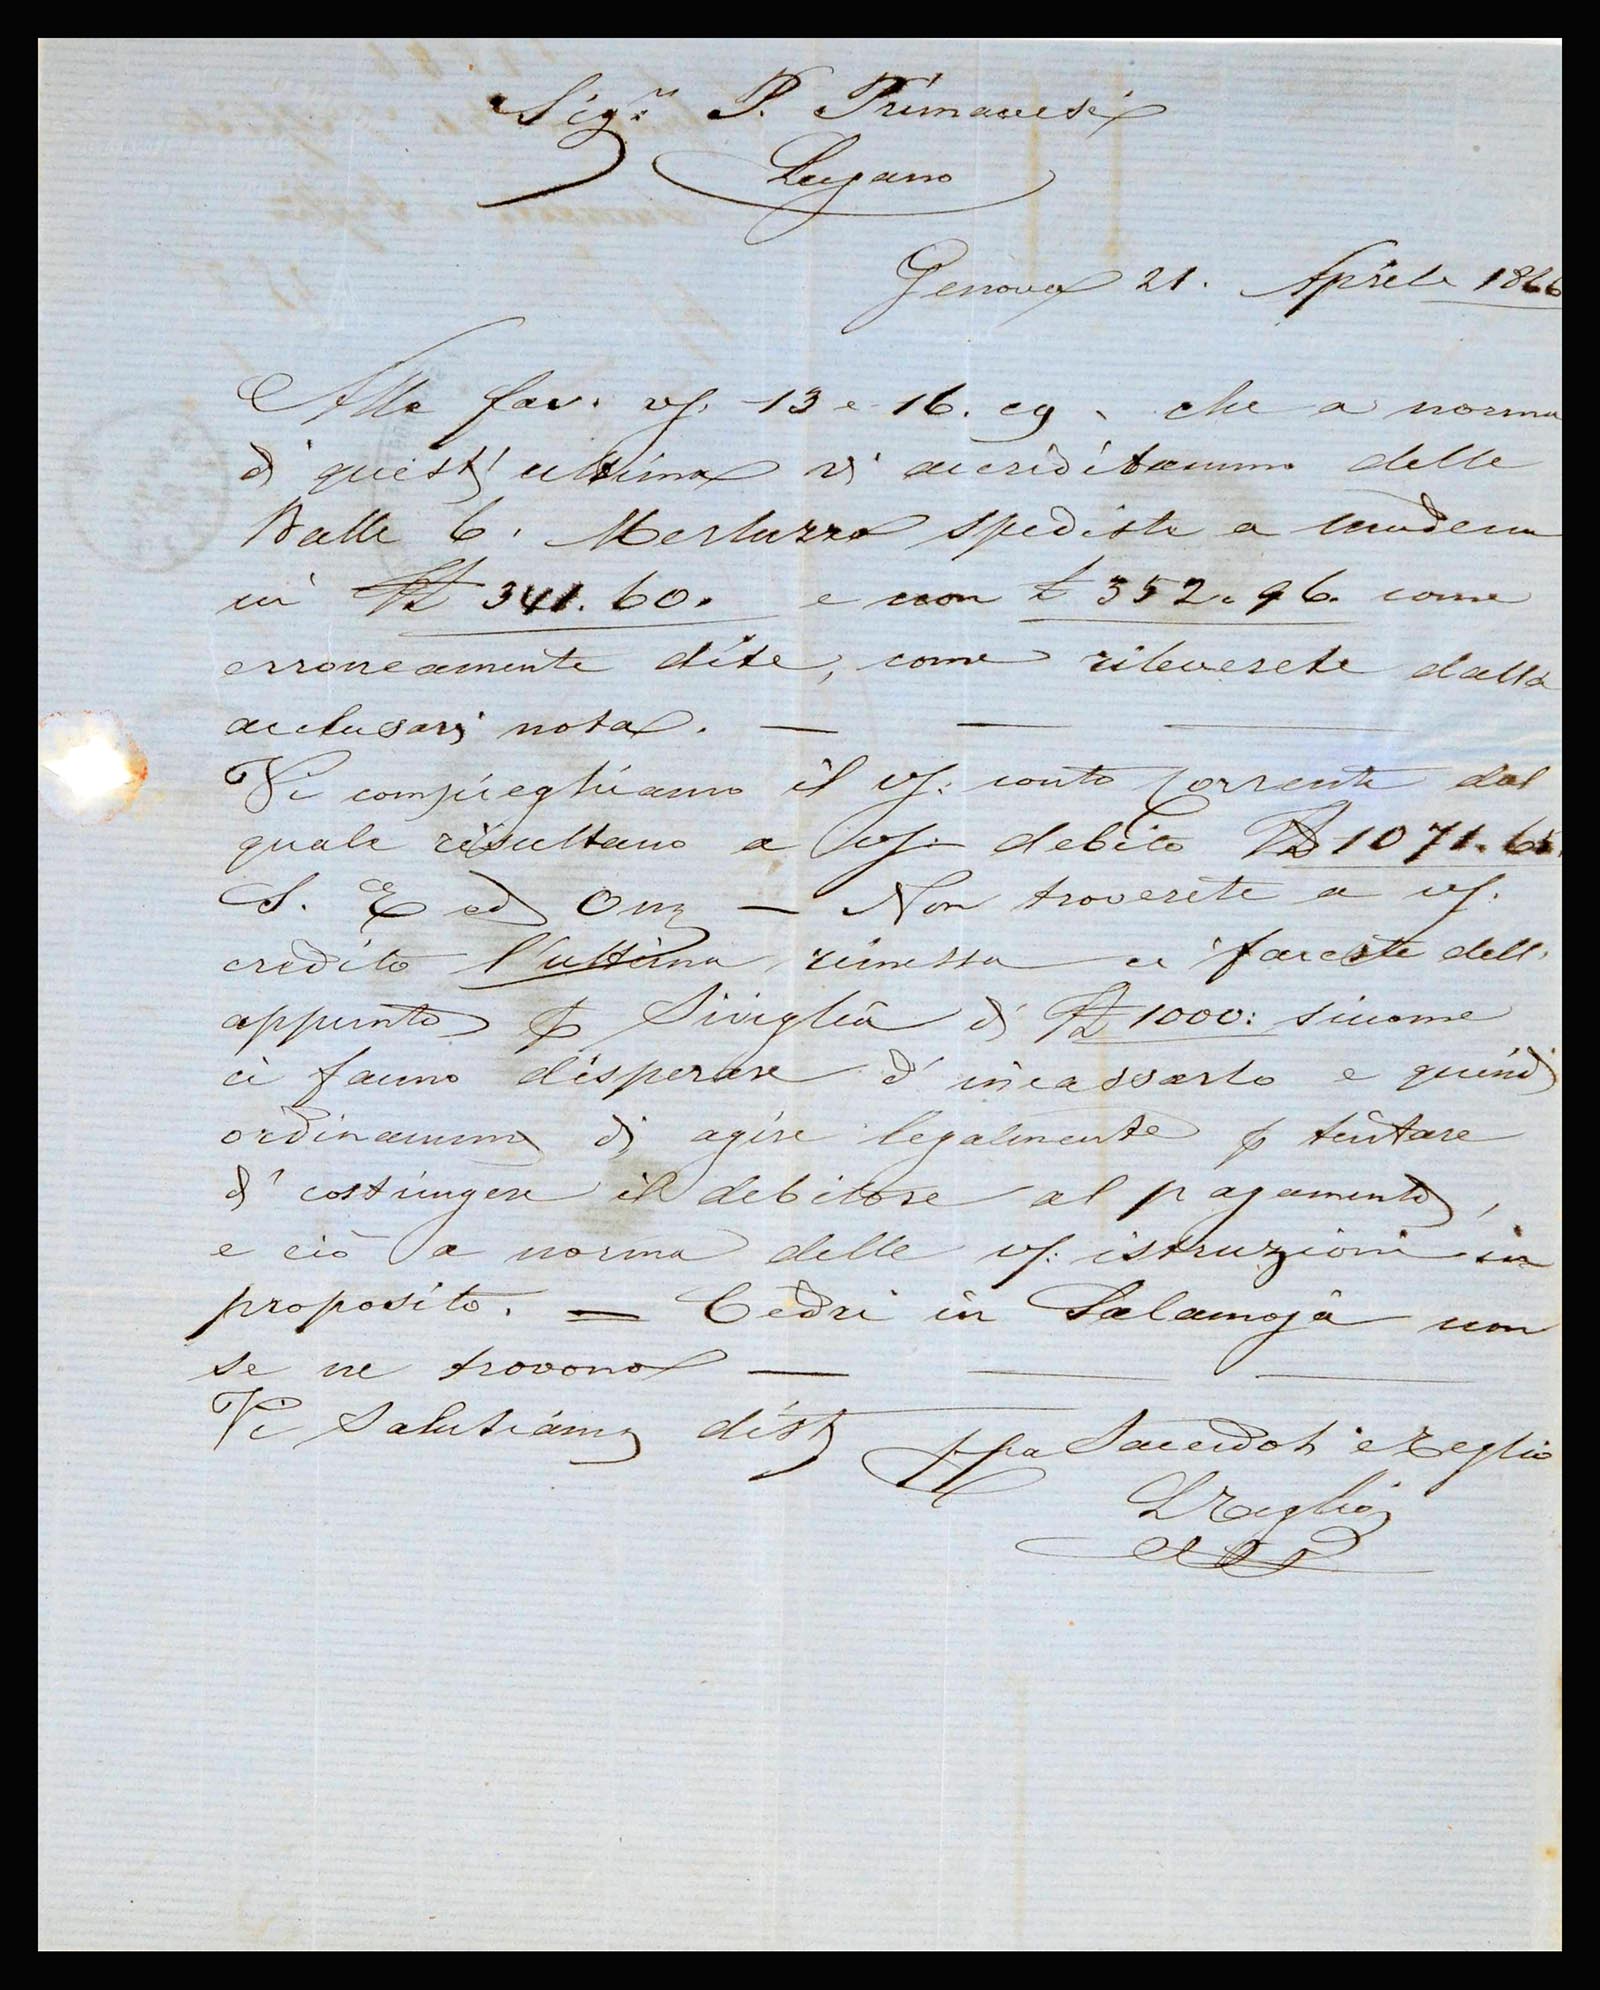 Sigr. P. Primavesi
Lugano
Genova 21. Aprile 1866
Alle fav. vs. 13 e 16. cg. che a norma
di quest'ultima vi accreditammo delle
Balle 6. Merluzzo spedite a Modena
in 341.60. e non £ 352.96. come
erroneamente dite, come rileverete dalla
acclusavi nota.
Vi compieghiamo il vs: conto corrente dal
quale risultano a vs: debito 1071.
S. E ed Om — Non troverete a vs.
credito l'ultima rimessa ci faceste dell'
appunto Siviglia di 1000: siccome
ci fanno disperare d'incassarlo e quindi
ordinammo di agire legalmente tentare
di costringere il debitore al pagamento,
e ciò a norma delle vs: istruzioni in
proposito. — Cedri in Salamoja non
se ne trovono
Vi Salutiamo dist
ppa Sacerdoti e Reglio
Reglio